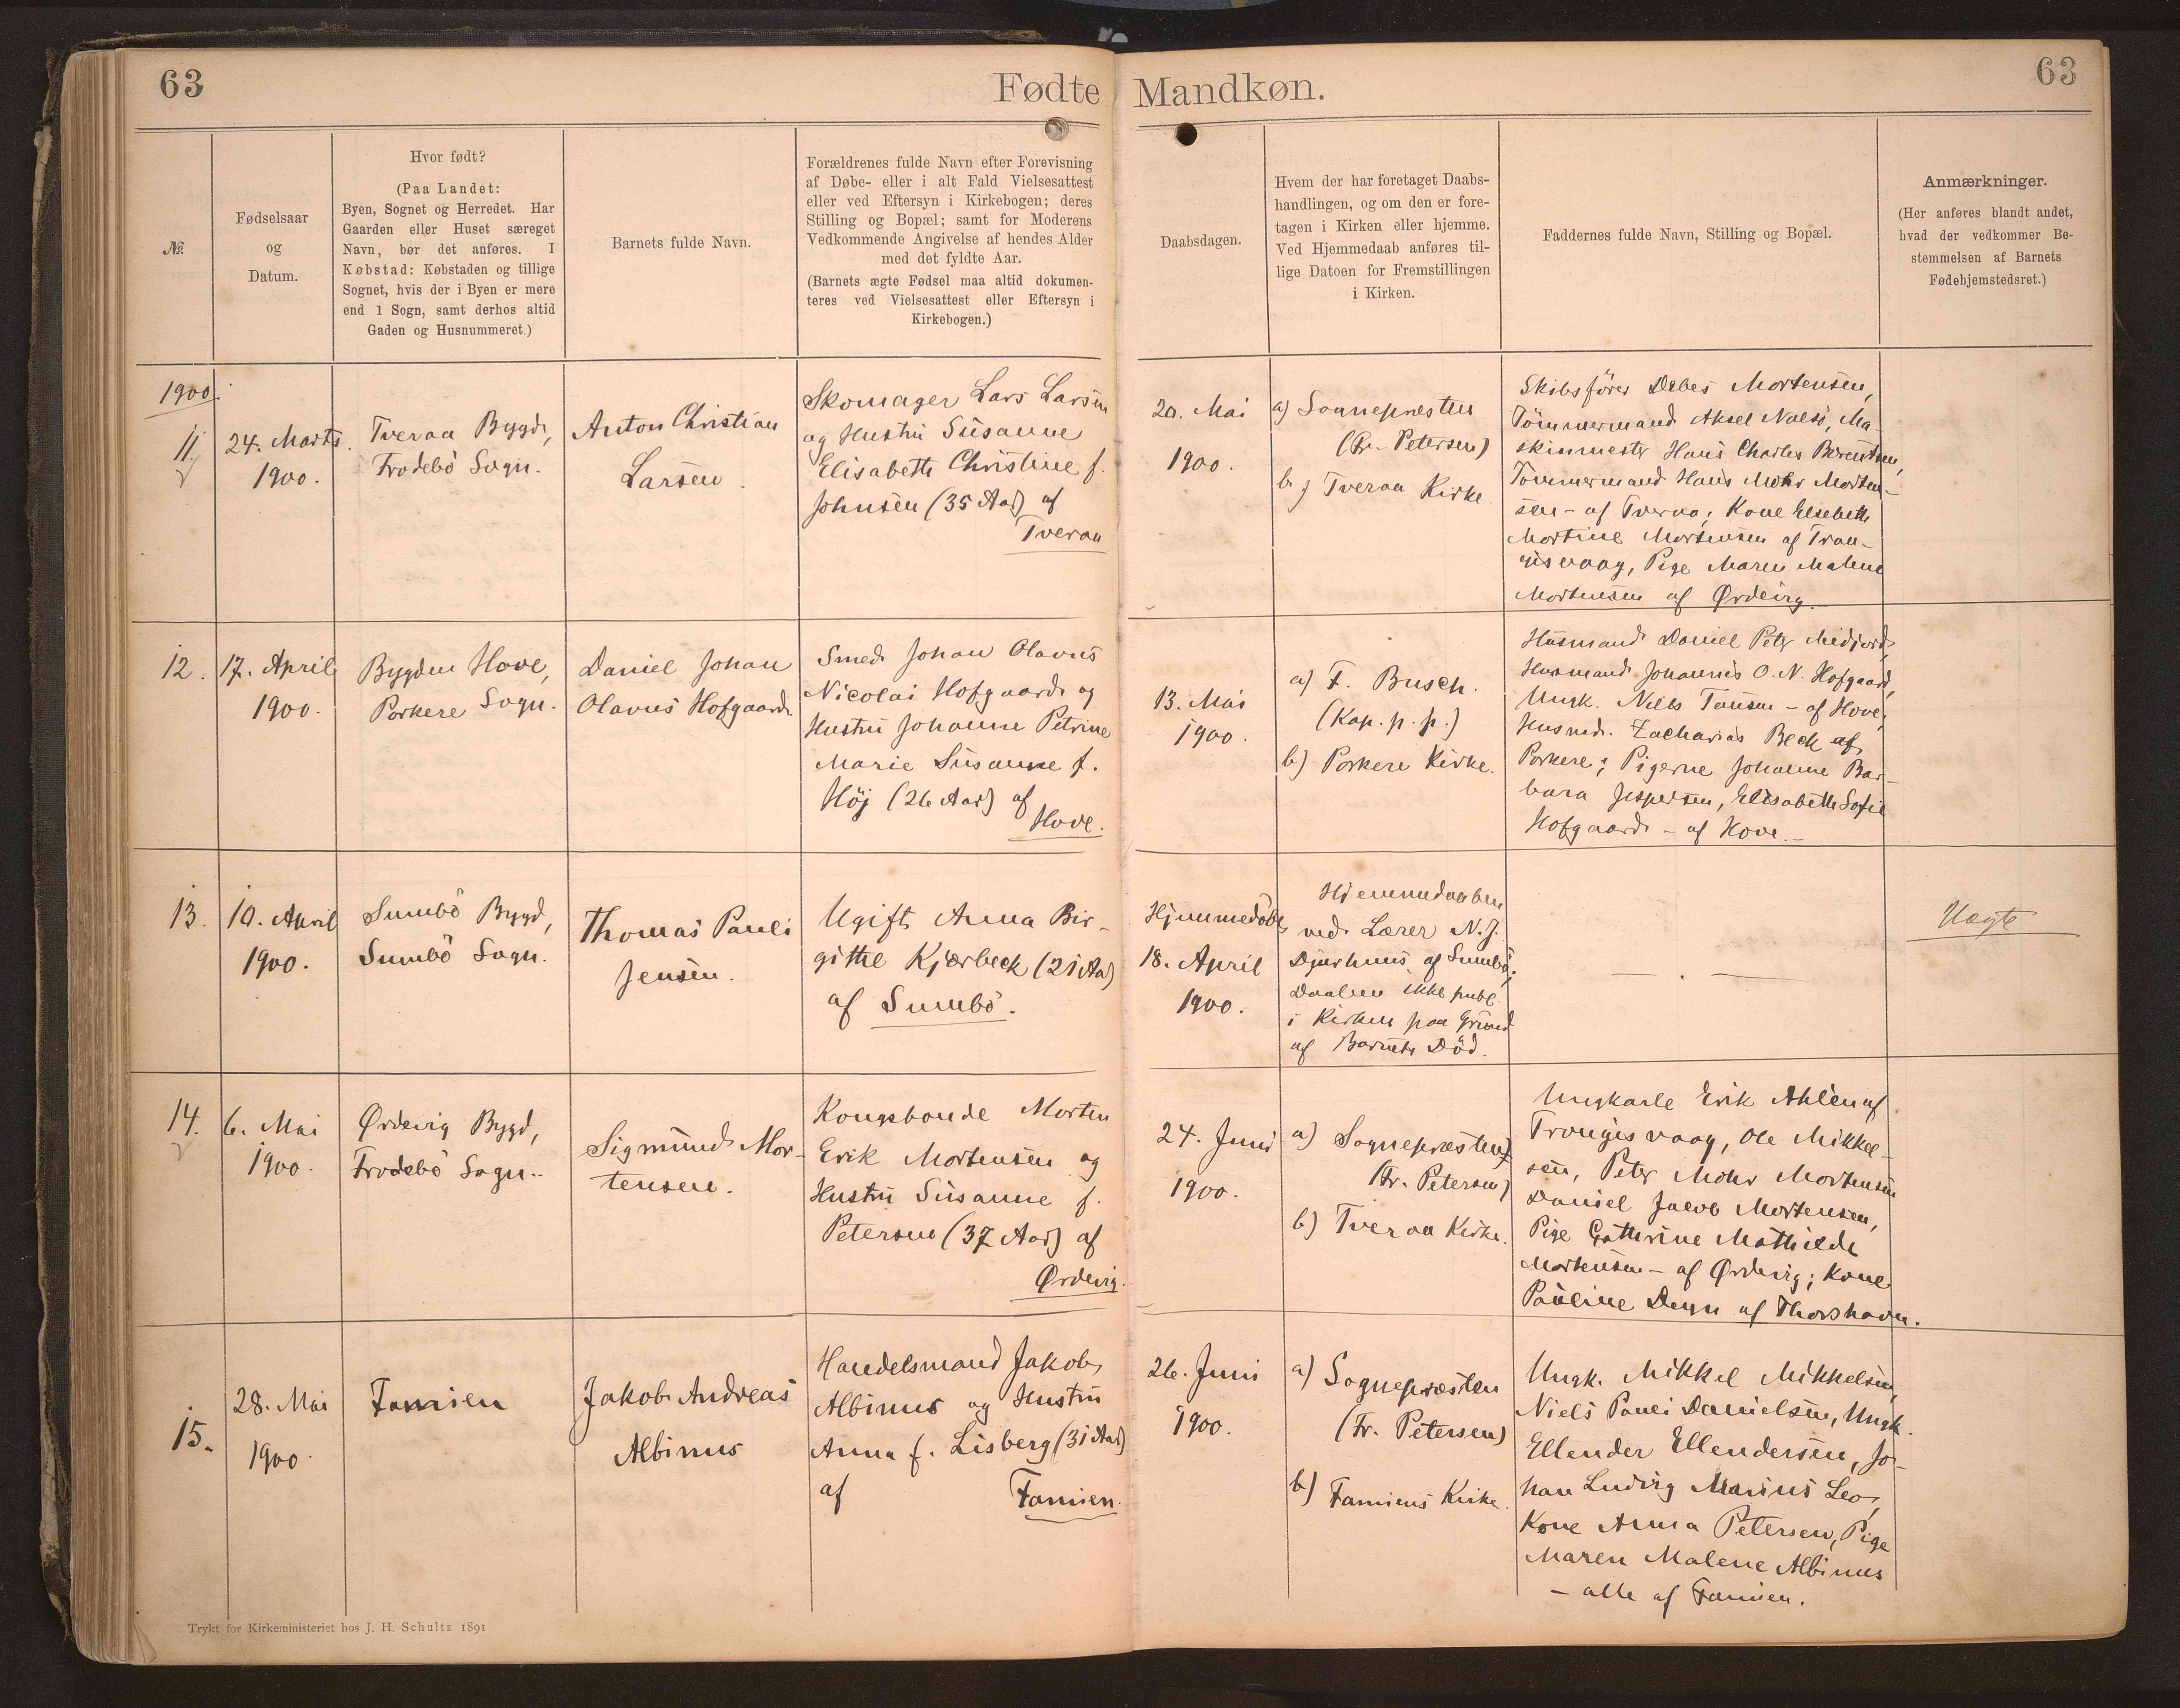 63
Fødte Mandkøn.
63
№.
Fødselsaar
og
Datum.
Hvor født?
(Paa Landet:
Byen, Sognet og Herredet. Har
Gaarden eller Huset særeget
Navn, bør det anføres. I
Købstad: Købstaden og tillige
Sognet, hvis der i Byen er mere
end 1 Sogn, samt derhos altid
Gaden og Husnummeret.)
Barnets fulde Navn.
Forældrenes fulde Navn efter Forevisning
af Døbe- eller i alt Fald Vielsesattest
eller ved Eftersyn i Kirkebogen; deres
Stilling og Bopæl; samt for Moderens
Vedkommende Angivelse af hendes Alder
med det fyldte Aar.
(Barnets ægte Fødsel maa altid dokumen-
teres ved Vielsesattest eller Eftersyn i
Kirkebogen.)
Daabsdagen.
Hvem der har foretaget Daabs-
handlingen, og om den er fore-
tagen i Kirken eller hjemme.
Ved Hjemmedaab anføres til-
lige Datoen for Fremstillingen
i Kirken.
Faddernes fulde Navn, Stilling og Bopæl.
Anmærkninger.
(Her anføres blandt andet,
hvad der vedkommer Be-
stemmelsen af Barnets
Fødehjemstedsret.)
1900.
11.
24. Marts
1900.
Tveraa Bygd,
Frodebö Sogn.
Anton Christian
Larsen.
Skomager Lars Larsen
og Hustru Susanne
Elisabeth Christine f.
Johnsen (35 Aar) af
Tveraa
20. Mai
1900.
a) Sognepræsten
(Fr. Petersen)
b) Tveraa Kirke.
Skibsfører Debes Mortensen,
Tömmermand Aksel Nolsö, Ma-
skinmester Hans Charles Berentsen,
Tömmermand Hans Mohr Morten-
sen - af Tveraa; Kone Elsebeth
Mortine Mortensen af Tran-
gisvaag, Pige Maren Malene
Mortensen af Ørdevig.-
12.
17. April
1900.
Bygden Hove,
Porkere Sogn.
Daniel Johan
Olavus Hofgaard.
Smed Johan Olavus
Nicolai Hofgaard og
Hustru Johanne Petrine
Marie Susanne f.
Höj (26 Aar) af
Hove.
13. Mai
1900.
a) F. Busch.
(Kap. p. p.)
b) Porkere Kirke.
Husmand Daniel Peter Midjord,
Husmand Johannis O. N. Hofgaard,
Ungk. Niels Tausen - af Hove;
Husmd. Zacharias Beck af
Porkere; Pigerne Johanne Bar-
bara Jespersen, Elisabeth Sofie
Hofgaard - af Hove.-
13.
10. April
1900.
Sumbö Bygd,
Sumbö Sogn.
Thomas Pauli
Jensen.
Ugift Anna Bir-
gitte Kjærbeck (21 Aar)
af Sumbö.
Hjemmedöbt
18. April
1900.
Hjemmedaaben
ved Lærer N. J.
Djurhuus af Sumbö;
Daaben ikke publ.
i Kirken paa Grund
af Barnets Död.
— . —
Uægte
14.
6. Mai
1900.
Ørdevig Bygd,
Frodebö Sogn.
Sigmund Mor-
tensen.
Kongsbonde Morten
Erik Mortensen og
Hustru Susanne f.
Petersen (37 Aar) af
Ørdevig.
24. Juni
1900.
a) Sognepræsten
(Fr. Petersen)
b) Tveraa Kirke.
Ungkarle Erik Ahlén af
Trongisvaag, Ole Mikkel-
sen, Peter Mohr Mortensen
Daniel Jacob Mortensen,
Pige Cathrine Mathilde
Mortensen - af Ørdevig; Kone
Pauline Degn af Thorshavn.
15.
28. Mai
1900.
Famien
Jakob Andreas
Albinus
Handelsmand Jakob
Albinus og Hustru
Anna f. Lisberg (31 Aar)
af Famien.
26. Juni
1900.
a) Sognepræsten
(Fr. Petersen)
b) Famiens Kirke.
Ungk. Mikkel Mikkelsen,
Niels Pauli Danielsen, Ungk.
Ellender Ellendersen, Jo-
han Ludvig Marius Leo,
Kone Anna Petersen, Pige
Maren Malene Albinus
- alle af Famien.
Trykt for Kirkeministeriet hos J. H. Schultz 1891